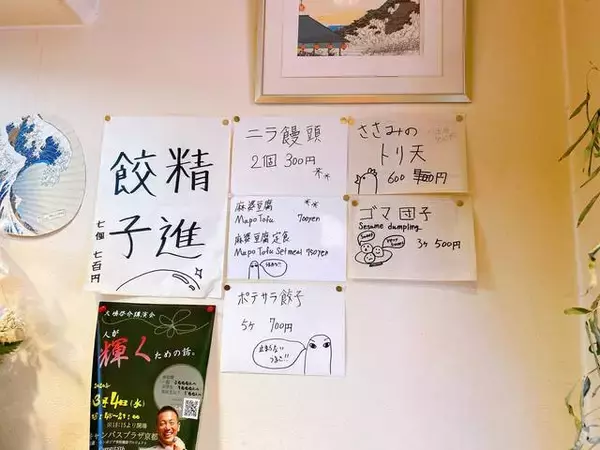 精進
餃子
七個 七百円
ニラ饅頭
2個 300円
ささみの
トリ天
600 円
麻婆豆腐
Mapo Tofu 700yen
麻婆豆腐 定食
Mapo Tofu Set meal 950yen
ゴマ団子
Sesame dumpling
3ヶ 500円
ポテサラ餃子
5ヶ 700円
止まらない
うまさ!!
人が
輝く
ための話。
3月4日(水)
キャンパスプラザ京都